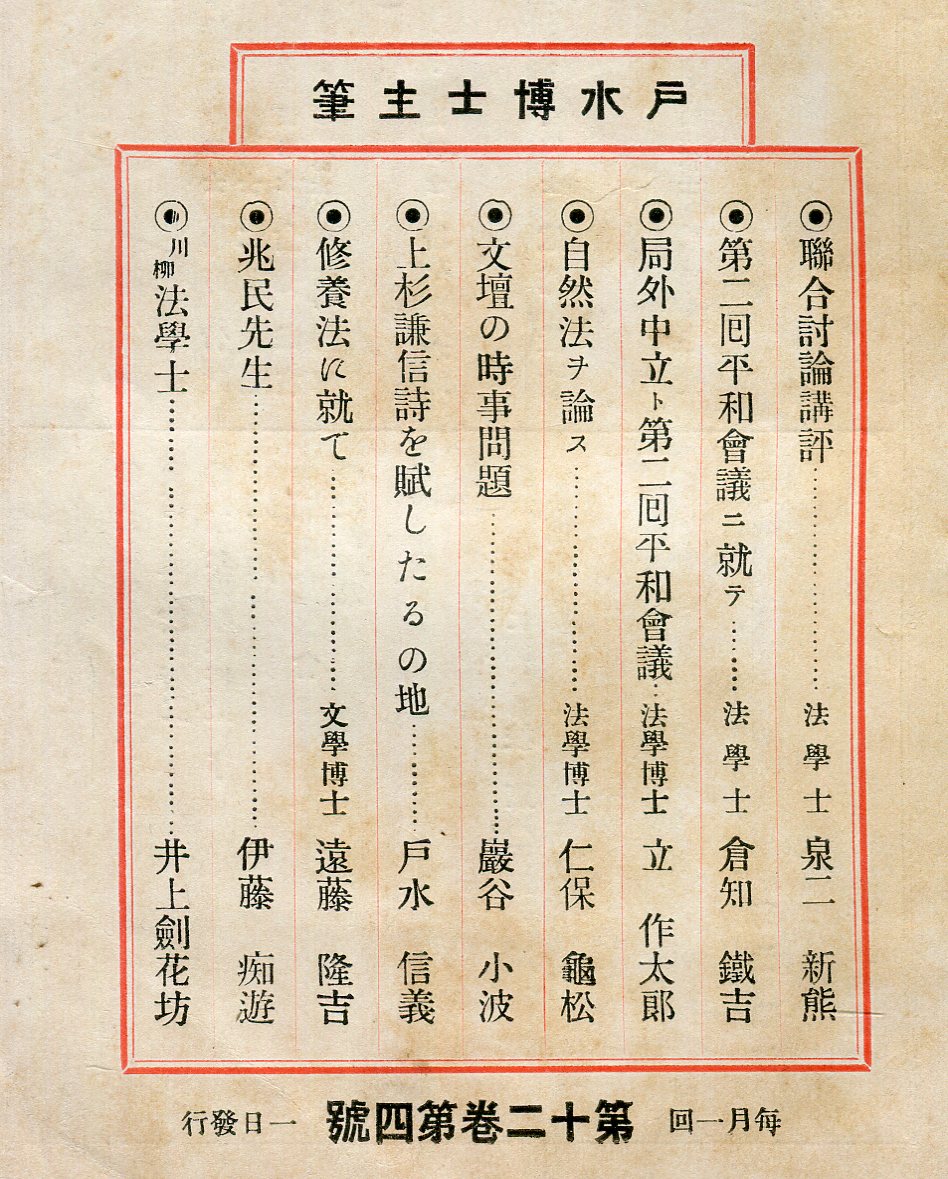 戸水博士主筆
◉聯合討論講評………………法學士 泉二 新熊
◉第二囘平和會議ニ就テ………法學士 倉知 鐵吉
◉局外中立ト第二囘平和會議…法學博士 立 作太郎
◉自然法ヲ論ス………………法學博士 仁保 龜松
◉文壇の時事問題………………巖谷 小波
◉上杉謙信詩を賦したるの地………戸水 信義
◉修養法に就て………………文學博士 遠藤 隆吉
◉兆民先生………………伊藤 痴遊
◉川柳法學士………………井上劍花坊
毎月一回 第十二卷第四號 一日發行